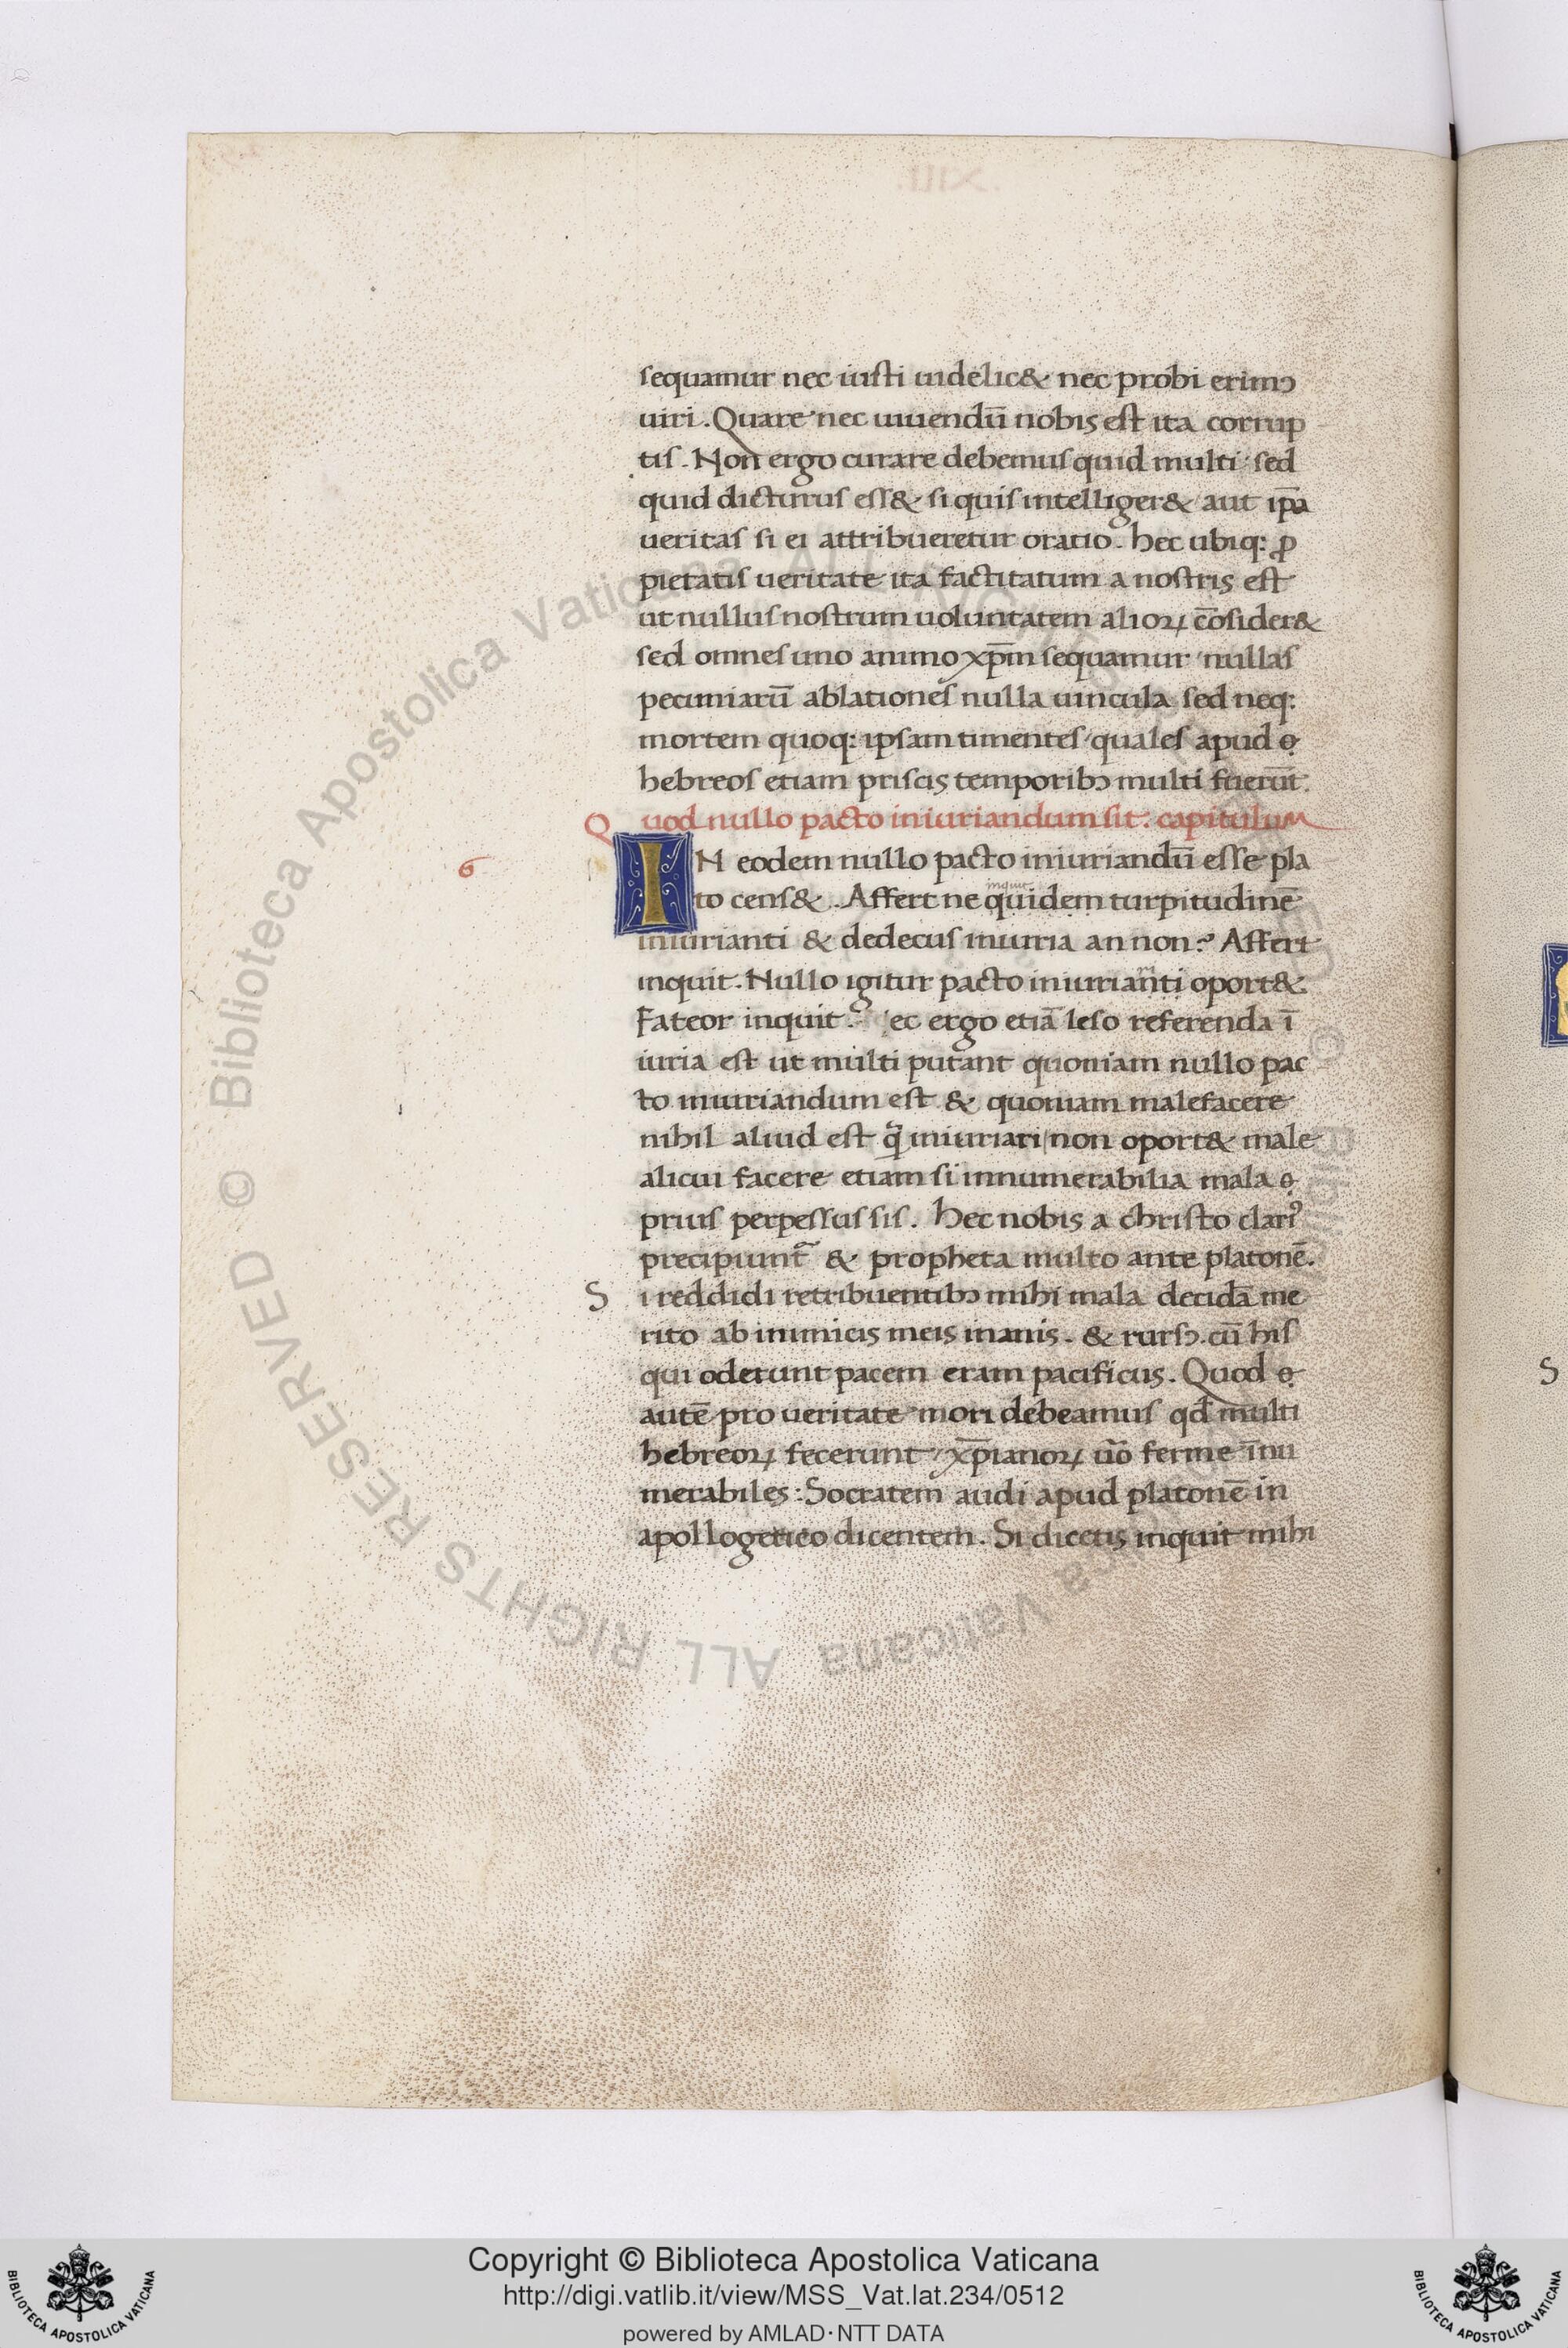 sequamur nec iusti uidelic& nec probi erimꝰ
uiri. Quare nec uiuendū nobis est ita corrup
tis. Non ergo curare debemus quid multi sed
quid dicturus ess& si quis intelliger& aut ip̄a
ueritas si ei attribueretur oratio. hec ubiq: ꝓ
pietatis ueritate ita factitatum a nostris est
ut nullus nostrum uoluntatem alioꝝ cōsider&
sed omnes uno animo xp̄m sequamur nullas
pecuniarū ablationes nulla uincula sed neq:
mortem quoq: ipsam timentes quales apud
hebreos etiam priscis temporibꝰ multi fuerūt.
Quod nullo pacto iniuriandum sit: capitulum
6
IN eodem nullo pacto iniuriandū esse pla
to cens&. Affert ne inquit quidem turpitudinē
iniurianti & dedecus iniuria an non? Affert
inquit. Nullo igitur pacto iniurianti oport&
Fateor inquit. ec ergo etiā leso referenda ī
iuria est ut multi putant quoniam nullo pac
to iniuriandum est & quoniam malefacere
nihil aliud est q̄ iniuriari non oport& male
alicui facere etiam si innumerabilia mala
prius perpessus sis. Hec nobis a christo clariꝰ
precipiunt̄ & propheta multo ante platonē.
Si reddidi retribuentibꝰ mihi mala decidā me
rito ab inimicis meis inanis. & rursꝰ. cū his
qui oderunt pacem eram pacificus. Quod
autē pro ueritate mori debeamus qd̄ multi
hebreoꝝ fecerunt xp̄ianoꝝ ūo ferme īnu
merabiles: Socratem audi apud platonē in
apollogetico dicentem. Si dicetis inquit mihi
S
© Biblioteca Apostolica Vaticana ALL RIGHTS RESERVED
Copyright © Biblioteca Apostolica Vaticana
http://digi.vatlib.it/view/MSS_Vat.lat.234/0512
powered by AMLAD·NTT DATA
BIBLIOTECA APOSTOLICA VATICANA
BIBLIOTECA APOSTOLICA VATICANA